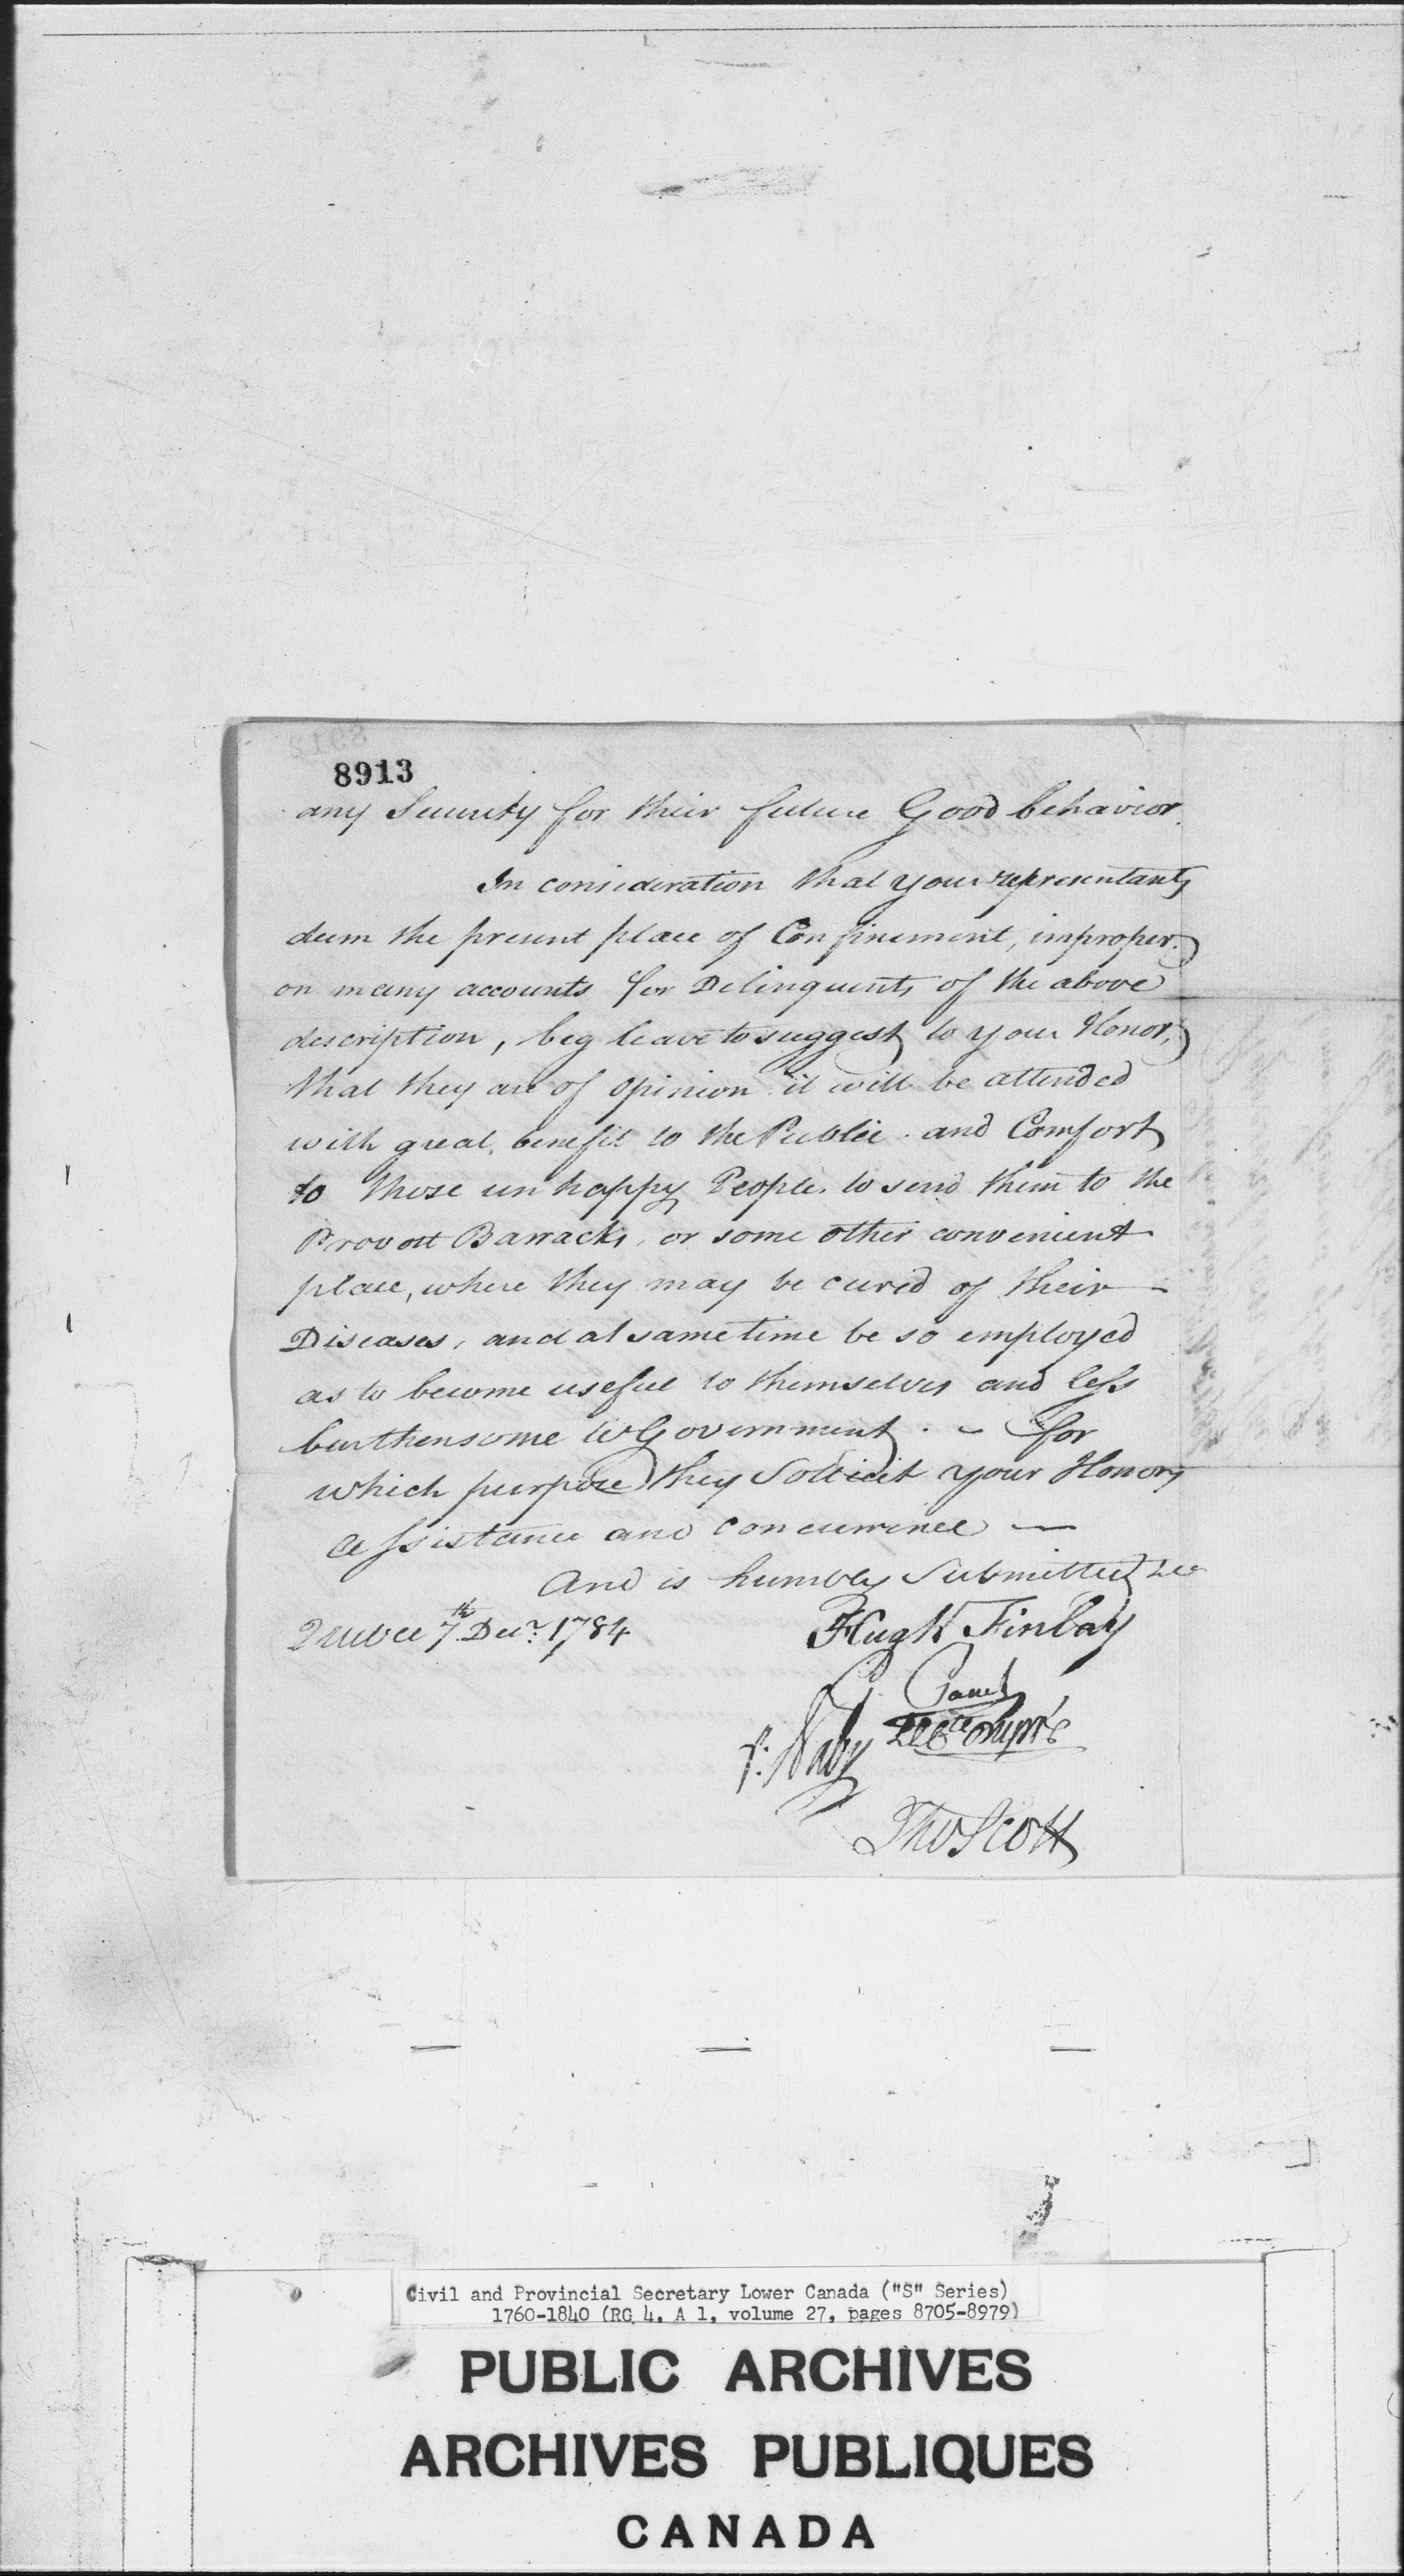 8913
any Security for their future Good behavior.
In consideration that your representants
deem the present place of Confinement, improper
on many accounts for Delinquents of the above
description, beg leave to suggest to your Honor,
that they are of opinion it will be attended
with great benefit to the Public and Comfort
to those unhappy People, to send them to the
Provost Barracks, or some other convenient
place, where they may be cured of their
Diseases, and at same time be so employed
as to become useful to themselves and less
burthensome to Government. - for
which purpose they Sollicit your Honors
assistance and concurrence —
And is humbly Submitted &ca
Quebec 7th Decr. 1784
Hugh Finlay
Panet
f: Naby
Tho Scott
Civil and Provincial Secretary Lower Canada ("S" Series)
1760-1840 (RG 4, A 1, volume 27, pages 8705-8979)
PUBLIC ARCHIVES
ARCHIVES PUBLIQUES
CANADA